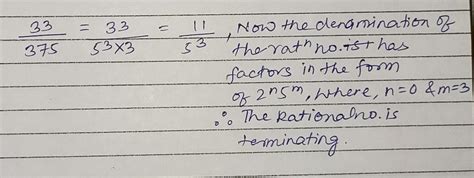 33/375 = 33/5³×3 = 11/5³, Now the deramination of
the ratⁿ no. ist has
factors in the form
of 2ⁿ5ᵐ, where, n=0 & m=3
∴ The Rational no. is
terminating.